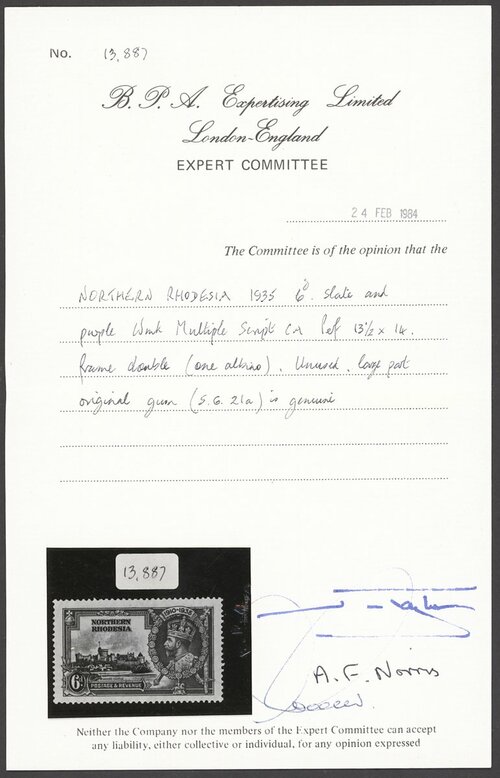 No. 13,887
B. P. A. Expertising Limited
London-England
EXPERT COMMITTEE
24 FEB 1984
The Committee is of the opinion that the
NORTHERN RHODESIA 1935 6d. slate and
purple Wmk Multiple Script CA Perf 13½ x 14.
frame double (one albino). Unused, large part
original gum (S.G. 21a) is genuine
13,887
1910-1935
NORTHERN
RHODESIA
6D
POSTAGE & REVENUE
A. F. Norris
Neither the Company nor the members of the Expert Committee can accept
any liability, either collective or individual, for any opinion expressed